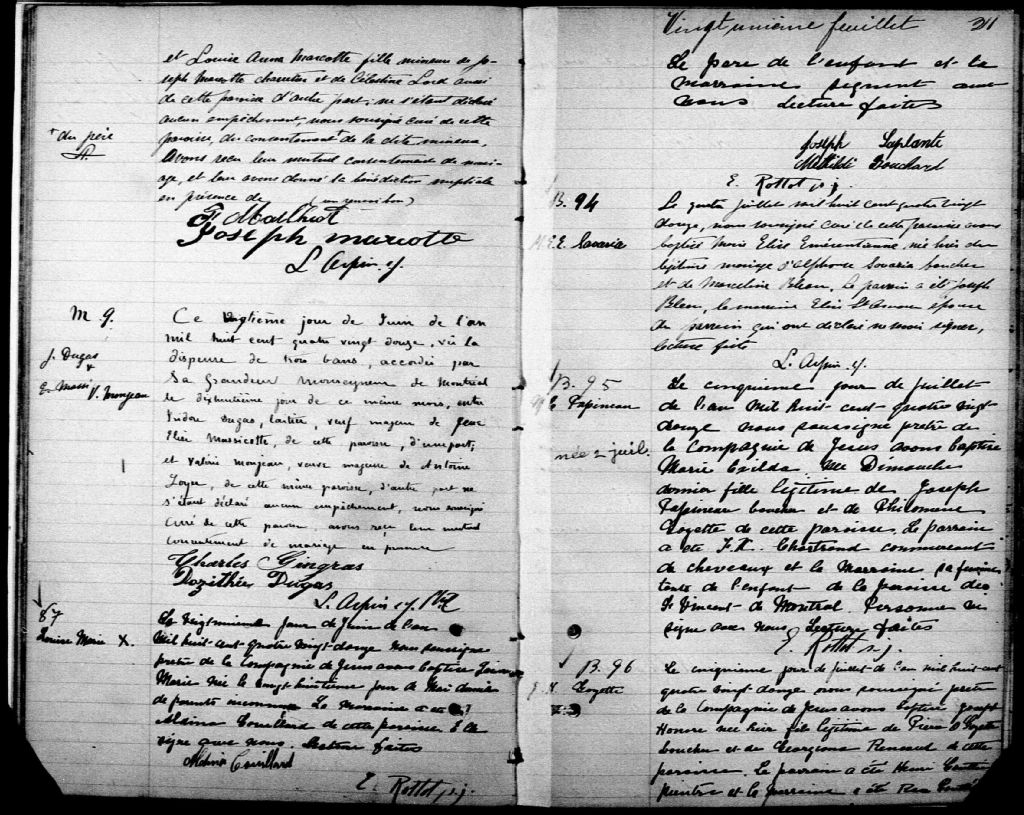 et Louise Anna Marcotte fille mineure de Jo-
seph Marcotte charretier et de Célestine Lord aussi
de cette paroisse d'autre part; ne s'étant déclaré
aucun empêchement, nous soussigné curé de cette
+ du père
paroisse, du consentement + de la dite mineure,
avons reçu leur mutuel consentement de mari-
age, et leur avons donné la bénédiction nuptiale
en présence de (un renvoi bon)
F Malhiot
Joseph marcotte
L Arpin sj.
M. 9.
J. Dugas
+
V. Monjeau
Ce vingtième jour de Juin de l'an
mil huit cent quatre vingt douze, vu la
dispense de trois bans, accordée par
Sa Grandeur Monseigneur de Montréal
le dixhuitième jour de ce même mois, entre
Isidore Dugas, laitier, veuf majeur de
Elie Massicotte, de cette paroisse, d'une part;
et Valérie Monjeau, veuve majeure de Antoine
de cette même paroisse, d'autre part ne
s'étant déclaré aucun empêchement, nous soussigné
curé de cette paroisse, avons reçu leur mutuel
consentement de mariage en présence
Charles Gingras
Dozithée Dugas
L. Arpin sj.
87
Louise Marie X.
Le vingt unième jour de Juin de l'an
mil huit cent quatre vingt douze nous soussigné
prêtre de la Compagnie de Jesus avons baptisé Louise
Marie née le vingt huitième jour de Mai dernier
de parents inconnus La Marraine a été
Couillard de cette paroisse. Elle
signe avec nous. Lecture faites
Couillard
E. Rottot s.j.
Vingt unième feuillet 21
Le père de l'enfant et la
marraine signent avec
nous Lecture faites
Joseph Laplante
Mathilde Bouchard
E. Rottot s.j.
B. 94
M. E. E. Savaria
Le quatre juillet mil huit cent quatre vingt
douze, nous soussigné curé de cette paroisse avons
baptisé Marie Elise Emérentienne, née hier du
légitime mariage d'Alphonse Savaria boucher
et de Marceline Bleau. Le parrain a été Joseph
Bleau, la marraine Elise St Amour épouse
du parrain qui ont déclaré ne savoir signer,
lecture faite
L. Arpin sj.
B. 95
M E Papineau
née 2 juil.
Le cinquième jour de juillet
de l'an mil huit-cent-quatre vingt
douze nous soussigné prêtre de
la Compagnie de Jesus avons baptisé
Marie Exilda née Dimanche
dernier fille légitime de Joseph
Papineau et de Philomène
Goyette de cette paroisse. Le parrain
a été F. X. Chartrand commercant
de cheveaux et la Marraine sa femme
tante de l'enfant de la paroisse de
St Vincent de Montreal. Personne ne
signe avec nous Lecture faites
E. Rottot s.j.
B. 96
J. H. Goyette
Le cinquième jour de juillet de l'an mil huit cent
quatre vingt douze nous soussigné prêtre
de la Compagnie de Jesus avons baptisé Joseph
Honoré née hier fils légitime de Pierre Goyette
boucher et de Georgiana Renaud de cette
paroisse. Le parrain a été Henri
peintre et la marraine a été Rea